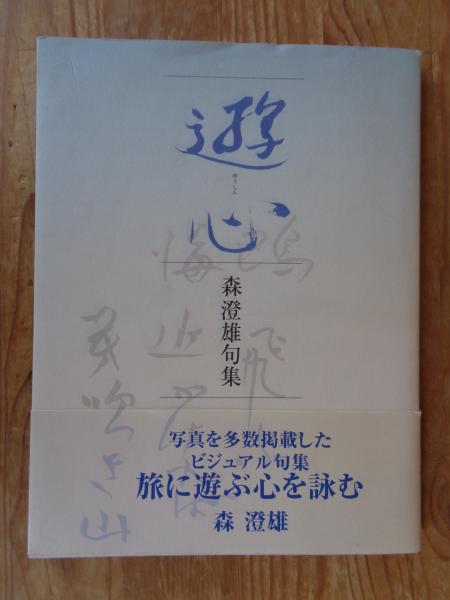 遊心
ゆうしん
森澄雄句集
写真を多数掲載した
ビジュアル句集
旅に遊ぶ心を詠む
森 澄雄